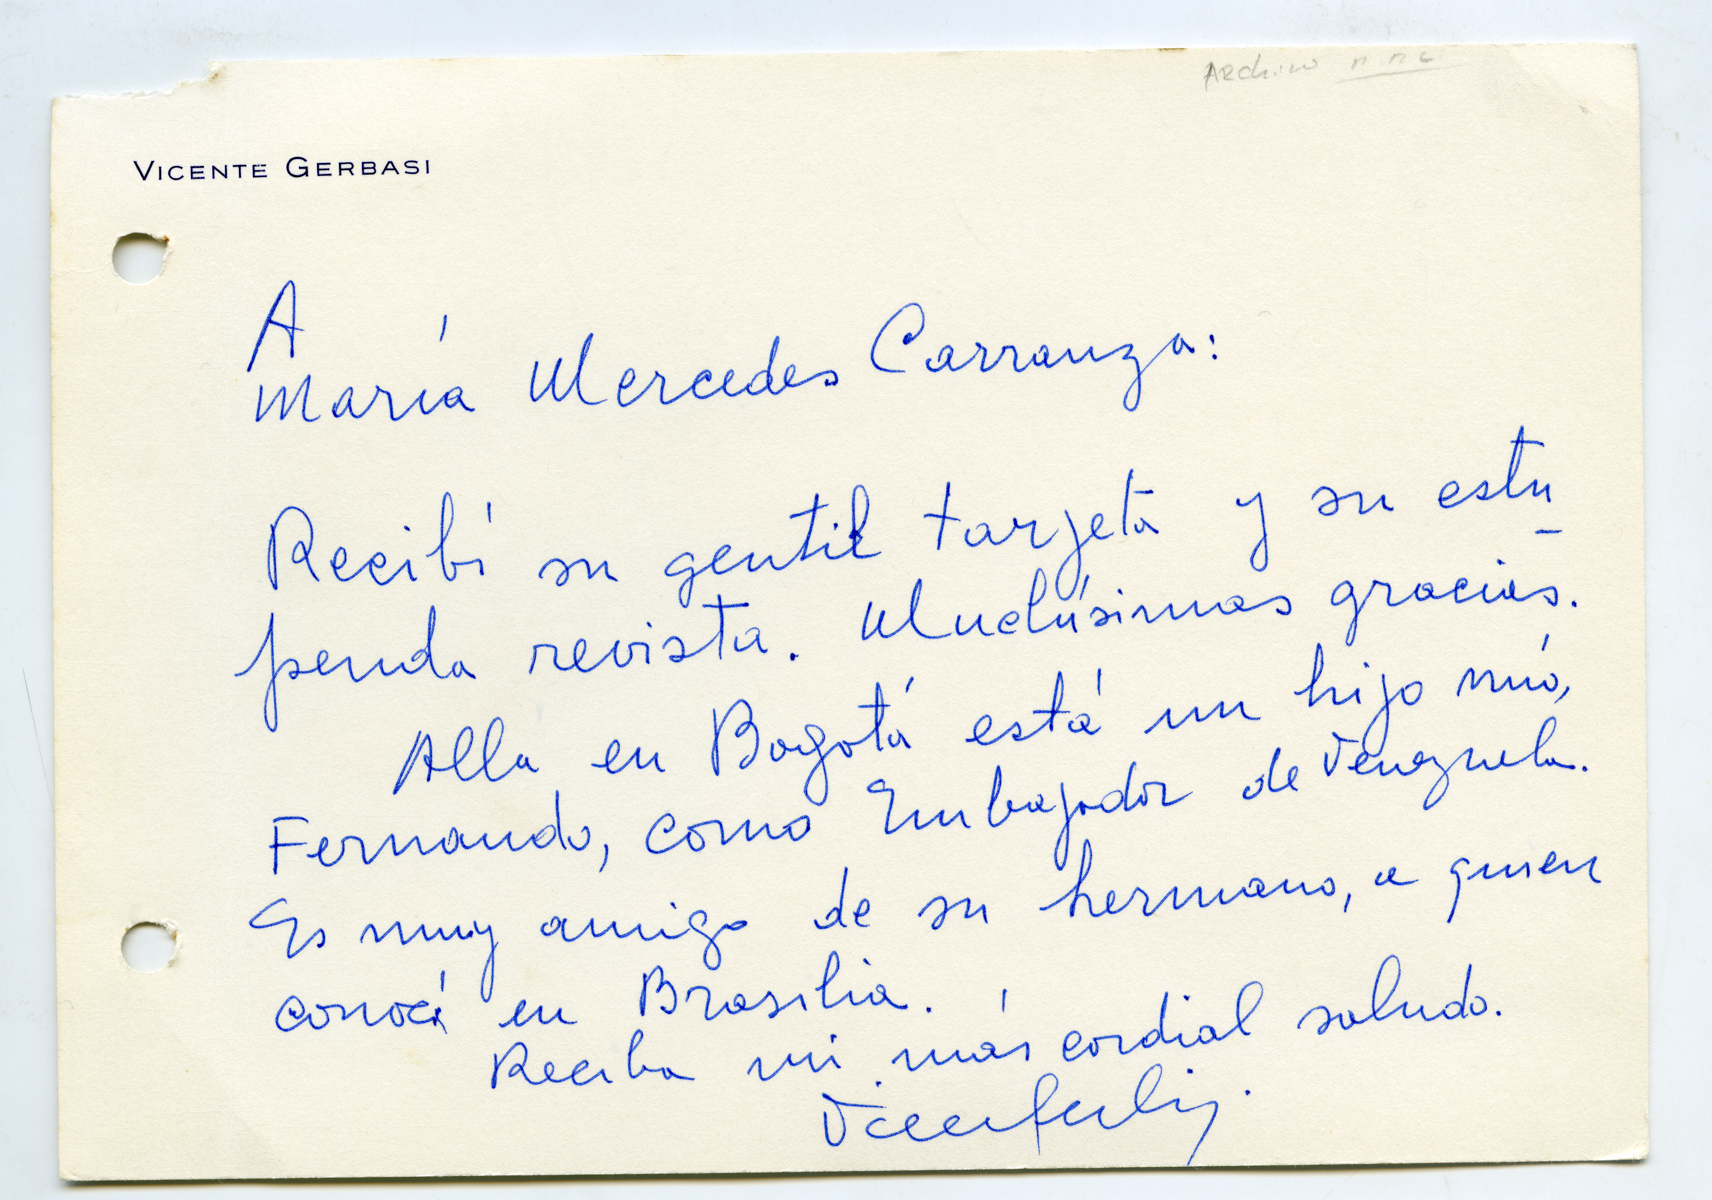 Archivo
VICENTE GERBASI
A
María Mercedes Carranza:
Recibí su gentil tarjeta y su estu-
penda revista. Muchísimas gracias.
Alla en Bogotá está un hijo mío,
Fernando, como Embajador de Venezuela.
Es muy amigo de su hermano, a quien
conocí en Brasilia.
Reciba mi más cordial saludo.